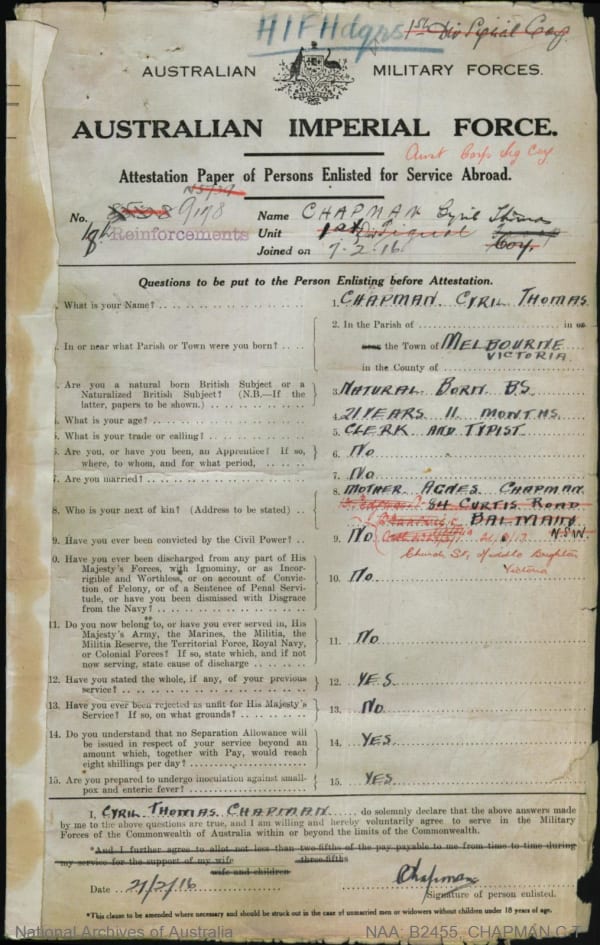 AIF Hdqrs 1st Div Signal Coy.
AUSTRALIAN MILITARY FORCES.
AUSTRALIAN IMPERIAL FORCE.
Aust Corps Sig Coy
Attestation Paper of Persons Enlisted for Service Abroad.
No. 9178 Name CHAPMAN Cyril Thomas
18th Reinforcements Unit 1st Div Signal Coy.
Joined on 7.2.16
Questions to be put to the Person Enlisting before Attestation.
. What is your Name? 1. CHAPMAN CYRIL THOMAS
. In or near what Parish or Town were you born? 2. In the Parish of in or
near the Town of MELBOURNE
VICTORIA
in the County of
. Are you a natural born British Subject or a
Naturalized British Subject? (N.B.—If the
latter, papers to be shown.) 3. NATURAL BORN B.S.
. What is your age? 4. 21 YEARS 11 MONTHS
. What is your trade or calling? 5. CLERK AND TYPIST
. Are you, or have you been, an Apprentice? If so,
where, to whom, and for what period, 6. No
. Are you married? 7. No
8. Who is your next of kin? (Address to be stated) 8. MOTHER AGNES CHAPMAN
84 CURTIS ROAD
BALMAIN
N.S.W.
Church St, Middle Brighton
Victoria
9. Have you ever been convicted by the Civil Power? 9. No
0. Have you ever been discharged from any part of His
Majesty's Forces, with Ignominy, or as Incor-
rigible and Worthless, or on account of Convic-
tion of Felony, or of a Sentence of Penal Servi-
tude, or have you been dismissed with Disgrace
from the Navy? 10. No
11. Do you now belong to, or have you ever served in, His
Majesty's Army, the Marines, the Militia, the
Militia Reserve, the Territorial Force, Royal Navy,
or Colonial Forces? If so, state which, and if not
now serving, state cause of discharge 11. No
12. Have you stated the whole, if any, of your previous
service? 12. YES
13. Have you ever been rejected as unfit for His Majesty's
Service? If so, on what grounds? 13. No
14. Do you understand that no Separation Allowance will
be issued in respect of your service beyond an
amount which, together with Pay, would reach
eight shillings per day? 14. YES
15. Are you prepared to undergo inoculation against small-
pox and enteric fever? 15. YES
I, CYRIL THOMAS CHAPMAN do solemnly declare that the above answers made
by me to the above questions are true, and I am willing and hereby voluntarily agree to serve in the Military
Forces of the Commonwealth of Australia within or beyond the limits of the Commonwealth.
*And I further agree to allot not less than two-fifths of the pay payable to me from time to time during
three-fifths
my service for the support of my wife
wife and children
Date 21/2/16 Chapman
Signature of person enlisted.
*This clause to be amended where necessary and should be struck out in the case of unmarried men or widowers without children under 18 years of age.
National Archives of Australia NAA: B2455, CHAPMAN C T